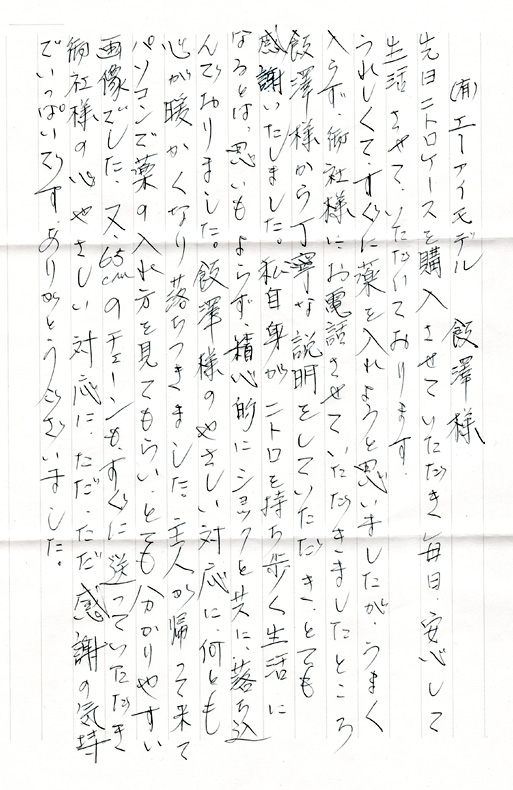 (有)エーアイモデル 飯澤様
先日ニトロケースを購入させていただき毎日、安心して
生活させていただいております。
うれしくて、すぐに薬を入れようと思いましたが、うまく
入らず、御社様にお電話させていただきましたところ
飯澤様から丁寧な説明をしていただき、とても
感謝いたしました。私自身がニトロを持ち歩く生活に
なるとは、思いもよらず、精心的にショックと共に、落ち込
んでおりました。飯澤様のやさしい対応に、何とも
心が暖かくなり落ちつきました。主人が帰って来て
パソコンで薬の入れ方を見てもらい、とても分かりやすい
画像でした。又、65cmのチェーンも、すぐに送っていただき
御社様の心やさしい対応に、ただ、ただ感謝の気持
でいっぱいです。ありがとうございました。